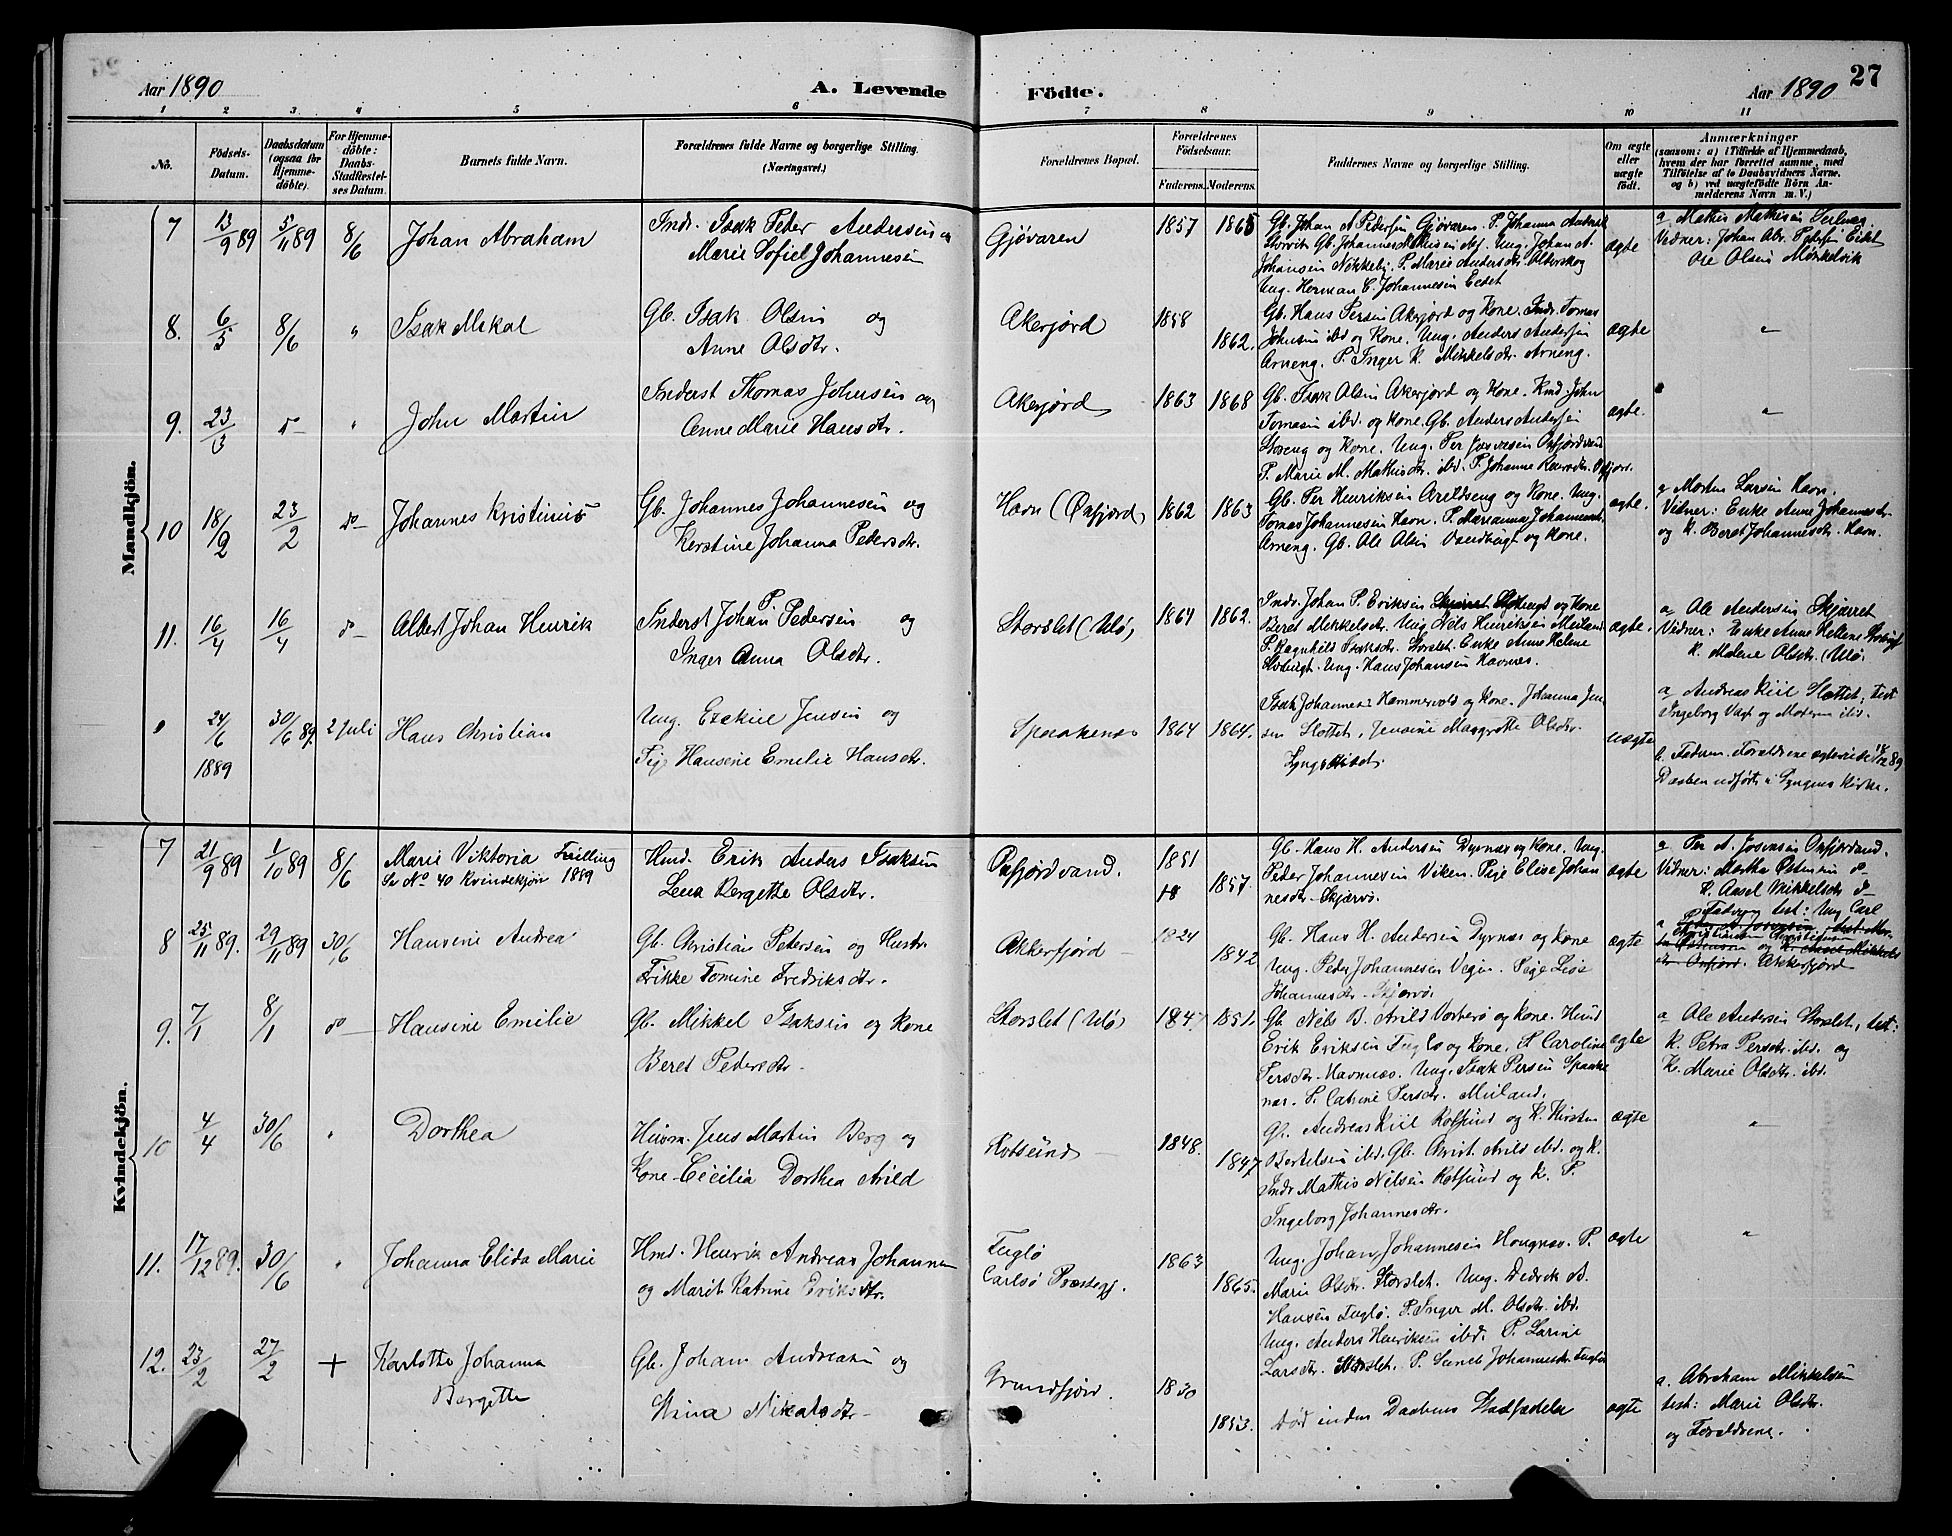 Aar 1890
A. Levende Födte.
Aar 1890
27
1 2 3 4 5 6 7 8 9 10 11
No.
Födsels-Datum.
Daabsdatum (ogsaa for Hjemme-döbte).
For Hjemme-döbte: Daabs-Stadfæstel-ses Datum.
Barnets fulde Navn.
Forældrenes fulde Navne og borgerlige Stilling.
(Næringsvei.)
Forældrenes Bopæl.
Forældrenes Födselsaar.
Faderens. Moderens.
Faddernes Navne og borgerlige Stilling.
Om ægte eller uægte födt.
Anmærkninger
(saasom: a) i Tilfælde af Hjemmedaab,
hvem der har forrettet samme, med
Tilföielse af to Daabsvidners Navne,
og b) ved uægtefödte Börn An-
melderens Navn m. V.)
Mandkjön.
7 13/9 89 5/11 89 8/6 Johan Abraham
Indr. Isak Peder Andersen og
Marie Sofiel Johannesen
Gjövaren 1857 1865
Gb. Johan A Pedersen Gjövaren. P. Johanna
Gb. Johannes Mathisen
Johansen Nikkeby. P. Marie Andersdr.
Ung. Herman C. Johannesen Eidet
ægte
a Mathis Mathisen
Vidner: Johan Abr. Pedersen Eidet
Ole Olsen Mörkelvik
8. 6/3 8/6 " Isak Mikal
Gb. Isak Olsen og
Anne Olsdtr.
Akerjord 1858 1862.
Gb. Hans Persen Akerjord og Kone. Indr. Tomas
Johnsen ibd og Kone. Ung. Anders Andersen
Arneng. P. Inger K. Mikkelsdtr. Arneng.
ægte "
9. 23/3 do " John Martin
Inderst Thomas Johnsen og
Anne Marie Hansdtr.
Akerjord 1863 1868
Gb. Isak Olsen Akerjord og Kone. Kmd. John
Tomesen ibd. og Kone. Gb. Anders Andersen
Storeng og Kone. Ung. Per
P. Marie M. Mathisdtr. ibd. P. Johanne
ægte. "
10 18/2 23/2 do Johannes Kristinus
Gb. Johannes Johannesen og
Kerstine Johanna Pedersdtr.
Havn (Oxfjord) 1862 1863
Gb. Per Henriksen og Kone. Ung.
Tomas Johannesen Havn. P. Marianna Johannesdr.
Arneng. Gb. Ole Olsen og Kone.
ægte.
a Morten Larsen Havn.
Vidner: Enke Anne Johannesdtr
og K. Beret Johannesdtr. Havn.
11. 16/4 16/4 do Albert Johan Henrik
Inderst Johan P. Pedersen og
Inger Anna Olsdtr.
Storslet (Ulö) 1864 1862.
Indr. Johan P. Eriksen og Kone
Beret Mikkelsdtr. Ung. Nels Henriksen Meiland
P. Ragnhild Isaksdtr. Storslet. Enke Anne Helene
Ung. Hans Johansen Havnes.
ægte.
a Ole Andersen Skjæret
Vidner: Enke Anne Hellene
K. Malene Olsdtr. (Ulö)
" 24/6 1889 30/6 89. 2 Juli Hans Christian
Ung. Ezekiel Jensen og
Pige Hansine Emilie Hansdtr.
Spaakenes 1864 1864.
Isak Johannes: Hammervold og Kone. Johanna Jen
sen Slottet, Jensine Margrethe Olsdtr.
Lyngseidet.
uægte
a Andreas Kiil Slottet, test
Ingeborg Vagt og Moderen ibd.
b. Faderen. Forældrene ægteviede 89
Daaben udfört i Lyngens Kirke.
Kvindekjön.
7 21/9 89 1/10 89 8/6 Marie Viktoria Tvilling
Se No 40 Kvindekjön 1889
Hmd. Erik Anders Isaksen
Lena Bergette Olsdtr.
Oxfjordvand. 1851 18 1857.
Gb. Hans H. Andersen Dyrnæs og Kone. Ung.
Peder Johannesen Viken. Pige Elise Johan
nesdtr. Skjærvö.
ægte
a Per A. Josensen Oxfjordvand.
Vidner: Martha Petersen do
K. Aasel Mikkelsdtr do
8 25/11 89. 29/11 89 30/6 Hansine Andrea
Gb. Christian Petersen og Hustr
Fikke Tomine Fredriksdtr.
Akkerfjord 1824 1842
Gb. Hans H. Andersen Dyrnæs og Kone
Ung. Peder Johannesen Pige Lise
Johannesdtr. Skjærvö.
ægte
test: Ung Carl
Akkerfjord
9. 7/1 8/1 do Hansine Emilie
Gb. Mikkel Isaksen og Kone
Beret Pedersdtr.
Storslet (Ulö) 1847 1851.
Gb. Nils B. Arild Vorterö og Kone. Hmd
Erik Eriksen Fuglö og Kone. P. Caroline
Persdtr. Havnnæs. Ung. Isak Persen Spaake
næs. P. Catrine Persdtr. Meiland.
ægte
a Ole Andersen Storslet, test:
K. Petra Persdtr. ibd. og
K. Marie Olsdtr. ibd.
10 4/4 30/6 " Dorthea
Huusm. Jens Martin Berg og
Kone Cecilia Dorthea Arild
Rotsund 1848. 1847
Gb. Andreas Kiil Rotsund og K. Kirsten
Bertelsen ibd. Gb. Christ. Arild ibd. og K.
Indr Mathis Nilsen Rotsund og K. P.
Ingeborg Johannesdtr.
ægte "
11. 17/12 89. 30/6 " Johanna Elida Marie
Hmd. Henrik Andreas Johannes
og Marit Katrine Eriksdtr.
Fuglö
Carlsö Præstegj. 1863 1865.
Ung. Johan Johannesen Hougnæs. P.
Marie Olsdtr. Storslet. Ung. Dedrik A.
Hansen Fuglö. P. Inger M. Olsdtr. ibd.
Ung. Anders Henriksen ibd. P. Larine
Larsdtr. Storslet. P. Johannesdtr. Fuglö
ægte "
12. 23/2 27/2 + Karlotte Johanna
Bergitte
Gb. Johan Andreasen og
Stina Nikalsdtr
Grundfjord. 1830 1853.
Död inden Daabens Stadfædelse
ægte
a. Abraham Mikkelsen
test: Marie Olsdtr.
og Forældrene.